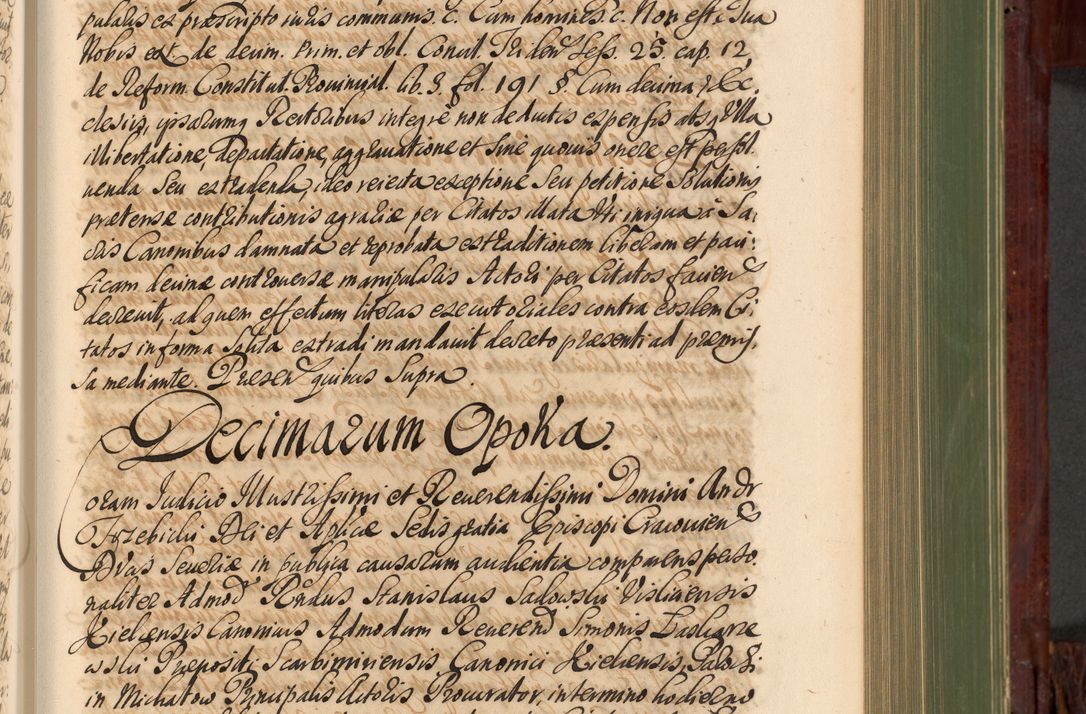 pularis ex præscripto iuris communis. c. Cum homines. c. Non est. c. Tua
Nobis ext. de decim. Prim. et obl. Concil. Triden Sess. 25. cap. 12
de Reform. Constitut. Provincial. lib. 3. fol. 191 §. Cum decimæ Ec
clesiis, ipsarumq Rectoribus integrè non deductis expensis absq Ulla
illibertatione, depactatione, aggrauatione et sine quouis onere est persol
uenda seu extradenda, ideo reiecta exceptione seu petitione solutionis
prætensæ contributionis agrariæ per Citatos illata Uti iniqua à Sa:
cris Canonibus damnata et reprobata extraditionem liberam et paci:
ficam decimæ controuersæ manipularis Actori per Citatos facien
decreuit, ad quem effectum literas executoriales contra eosdem Ci:
tatos in forma solita extradi mandauit decreto præsenti ad præmis,
sa mediante. Presen quibus supra.
Decimarum Opoka.
Coram Iudicio Illustrissimi et Reuerendissimi Domini Andr
Trzebicki Dei et Aplicæ Sedis gratia Episcopi Cracouien
Ducis Seueriæ in publica causarum audientia comparens perso
naliter Admod Rndus Stanislaus Sadowski Visliciensis
Kielcensis Canonicus Admodum Reuerend Simonis
wski Præpositi Scarbimiriensis Canonici Kielcensis,
in Michałow Principalis Actoris Procurator, in termino hodierno